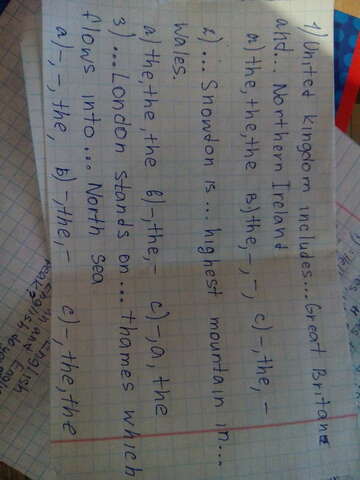 1) United kingdom includes... Great Britane
and... Northern Ireland
a) the, the, the в) the, -, -, c) -, the, -
2) ... Snowdon is ... highest mountain in...
Wales.
a) the, the, the в) -, the, - c) -, a, the
3) ... London stands on... thames which
flows into... North sea
a) -, -, the, в) -, the, - c) -, the, the
English